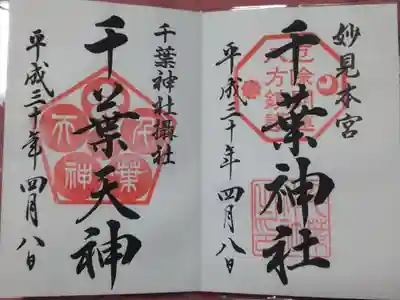 妙見本宮
千葉神社
平成三十年四月八日
千葉神社摂社
千葉天神
平成三十年四月八日